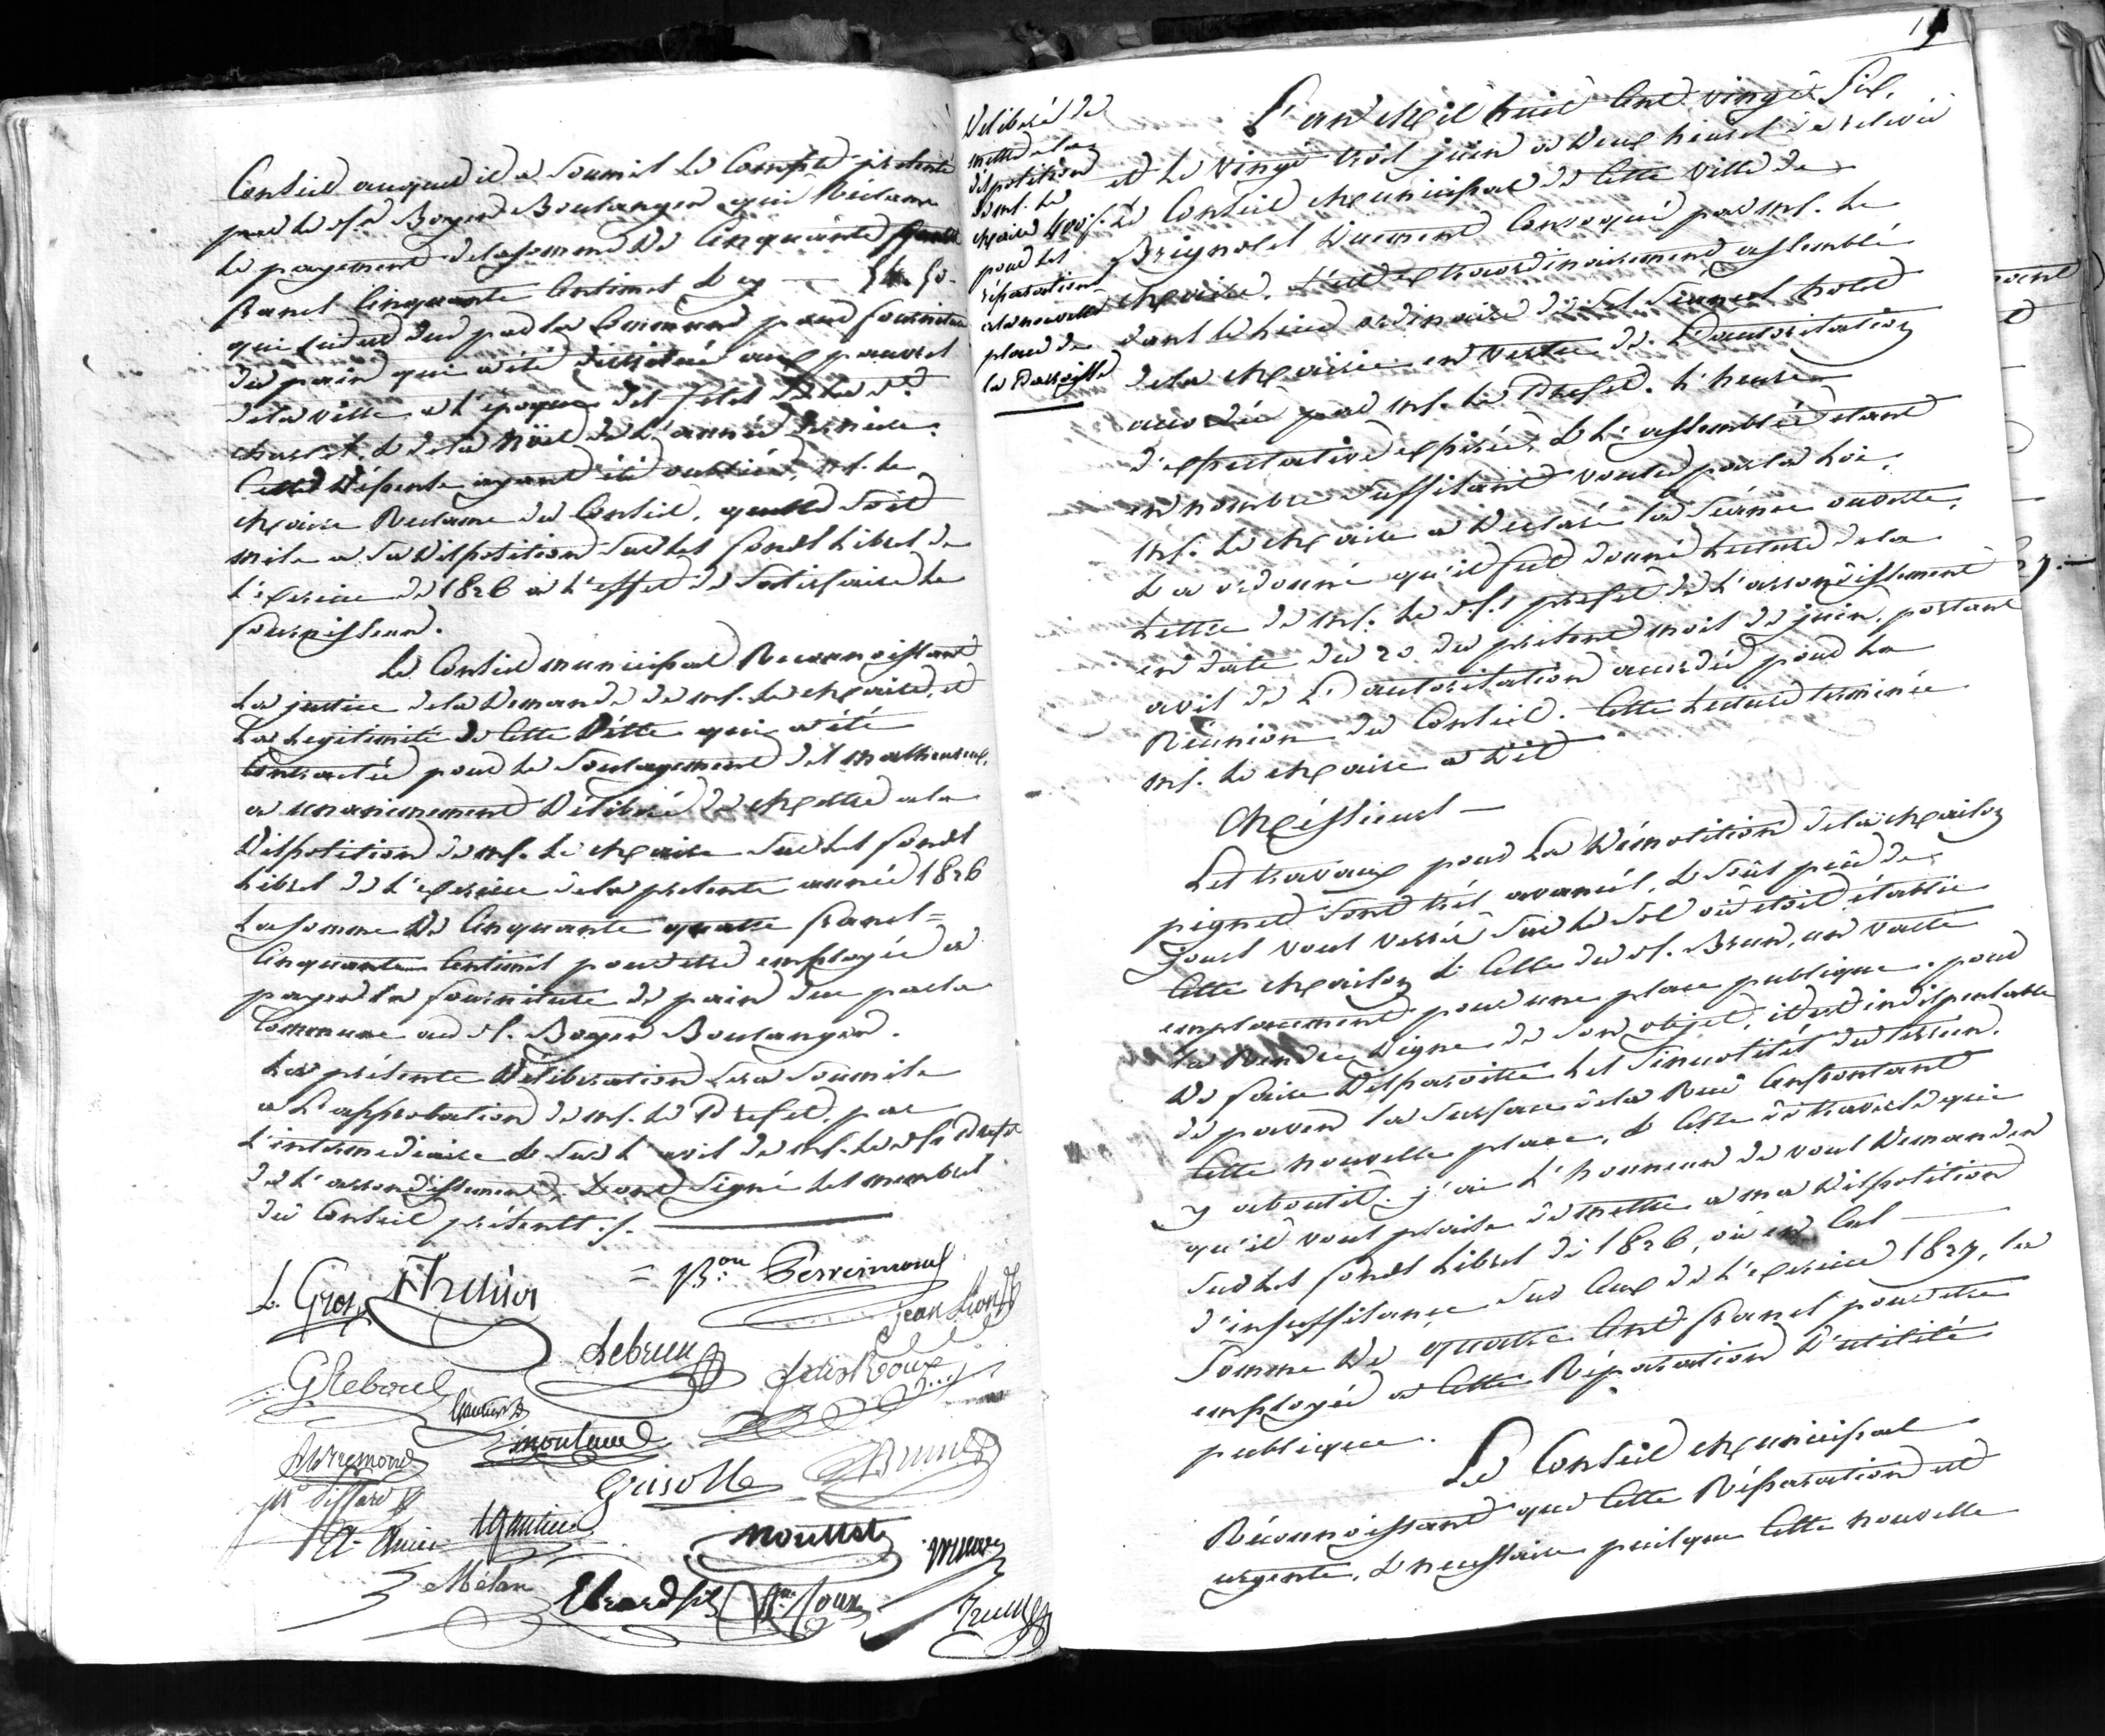 Conseil auquel il a soumis le Compte présenté
par le sr. Boyer Boulanger qui Réclame
le payement de la somme de Cinquante quatre
francs Cinquante Centimes & cy — 54. 50.
qui lui est due par la Commune pour fourniture
du pain qui a été distribué aux pauvres
de la ville a l'époque des fêtes de la St
Charles, & de la Noël de l'année dernière.
Cette Dépense ayant été oubliée, mr. le
Maire Reclame du Conseil, quelle soit
mise a sa disposition sur les fonds libres de
l'exercice de 1826 a l'effet de satisfaire le
fournisseur.
Le Conseil municipal Reconnoissant
La justice de la Demande de mr. le Maire, et
La legitimité de cette Dette qui a été
Contractée pour le soulagement des malheureux,
a unanimement Délibéré de Mettre a la
Disposition de mr. le Maire sur les fonds
libres de l'exercice de la presente année 1826
La somme de Cinquante quatre francs =
Cinquante Centimes pour être employée a
payer la fourniture de pain due par la
Commune au sr. Boyer Boulanger.
La présente Délibération sera soumise
a L'approbation de mr. le Préfet, par
l'intermediaire & sur l'avis de mr. le sr Préfet
de l'arrondissement. & ont signé les membres
du Conseil présents./.
L. Gros
= Bon Perreimond
Jean Lion
Lebrun
GReboul
Gautier
moutard
AVreimond
Grisolle
Brun
Gautier
Mélan
19
Délibéré de
mettre a la
disposition
de mr. le
Maire 400 f.
pour les
réparations
a la nouvelle
place de
la Paroisse
L'an Mil huit Cent vingt Six,
et le vingt trois juin a Deux heures de relevée
Le Conseil Municipal de Cette ville de
Brignoles Duement Convoqué par mr. le
Maire, s'est extraordinairement assemblé
dans le lieu ordinaire de ses Séances hotel
de la Mairie en Vertu de L'autorisation
accordée par mr. le Préfet. L'heure
d'expectative expirée, & L'assemblée étant
en nombre suffisant voulu par la loi,
mr. le Maire a Déclaré la Séance ouverte,
& a ordonné qu'il fut donné lecture de la
Lettre de mr. le s.s préfet de L'arrondissement
en date du 20 du présent mois de juin, portant
avis de L'autorisation accordée pour la
Réunion du Conseil. Cette Lecture terminée
mr. le Maire a Dit
Messieurs —
Les travaux pour La Démolition de la Maison
pignet sont très avancés, & sous peu de
jours vous verrés sur le sol où etoit établie
Cette Maison & Celle du sr. Brun, un vaste
emplacement pour une place publique. pour
La Rendre Digne de son objet, il est indispensable
De faire Disparoitre les Sinuosités du terrein,
de paver la surface de la Rue Confrontant
Cette nouvelle place, & celle de traverse qui
y aboutit. j'ai L'honneur de vous Demander
qu'il vous plaise de mettre a ma Disposition
sur les fonds libres de 1826, où en Cas
d'insuffisance sur Ceux de L'exercice 1827, la
Somme De quatre Cent francs pour être
employée a Cette Réparation D'utilité
publique.
Le Conseil Municipal
Réconnoissant que Cette Réparation est
urgente, & necessaire puisque Cette nouvelle